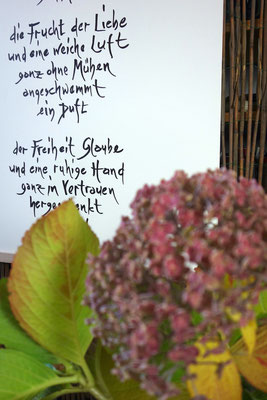 die Frucht der Liebe
und eine weiche Luft
ganz ohne Mühen
angeschwemmt
ein Duft
der Freiheit Glaube
und eine ruhige Hand
ganz in Vertrauen